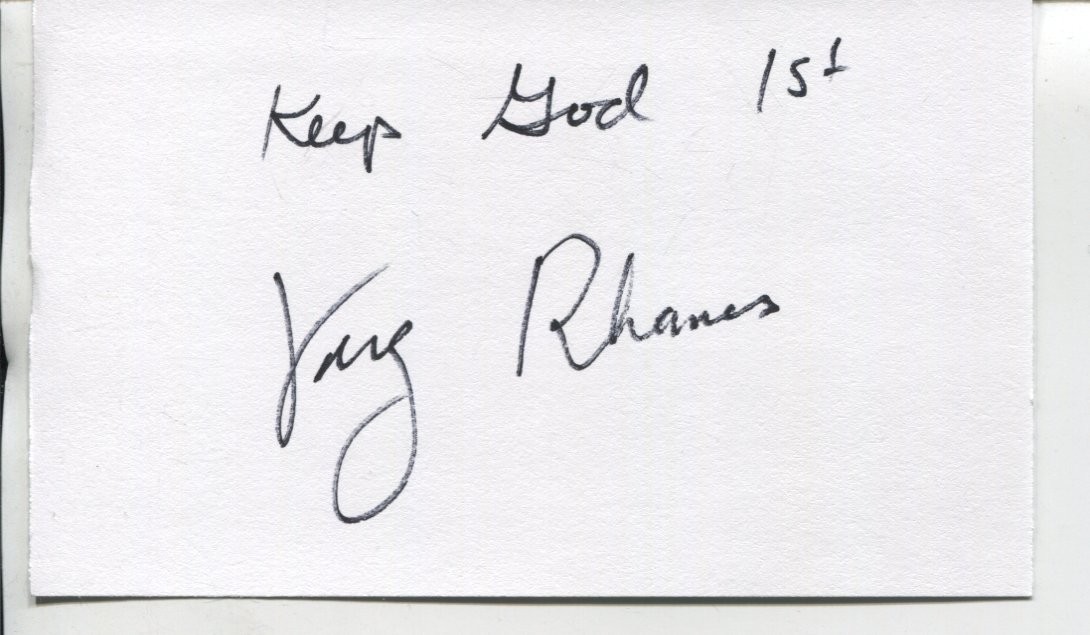 Keep God 1st
Ving Rhames